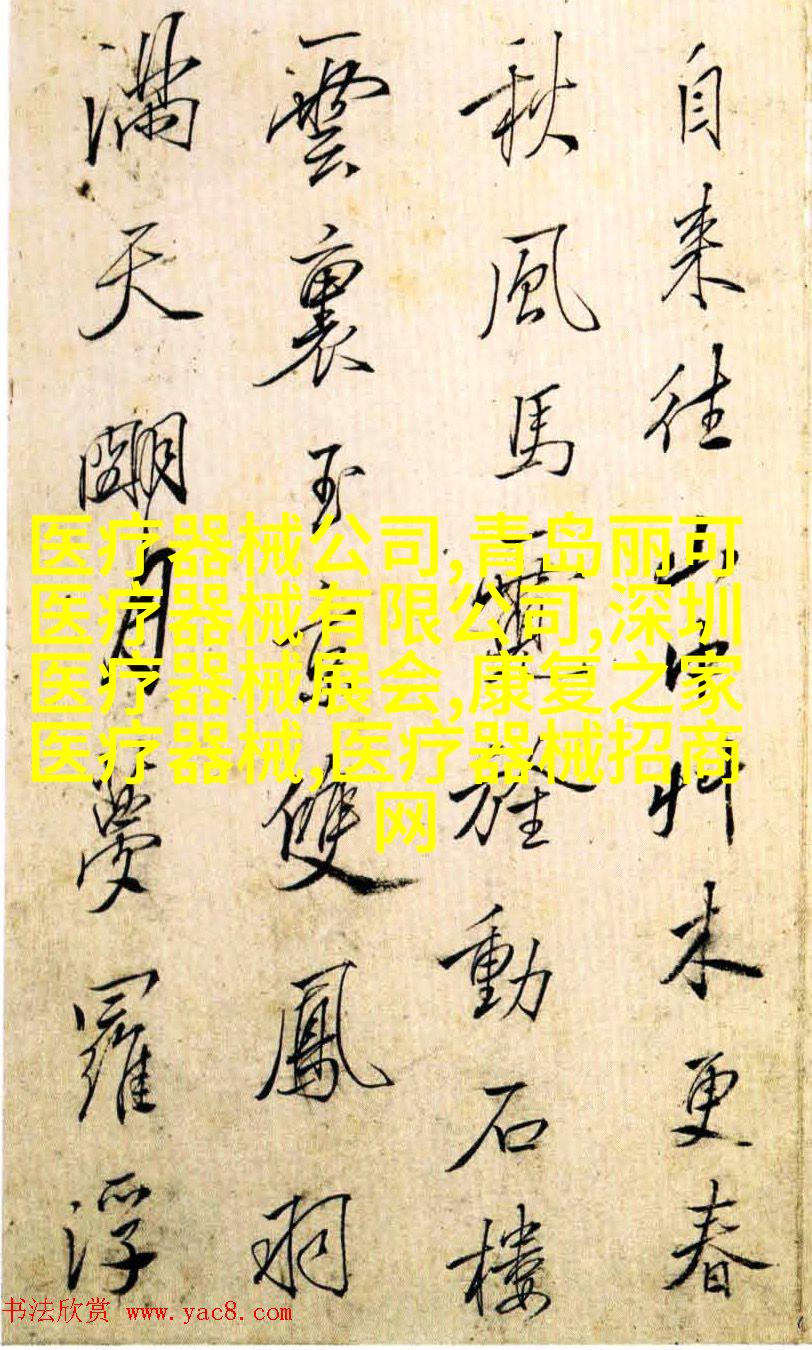 自来往山中艸木更春
秋風馬旌動石樓
雲裏玉京雙鳳
滿天朙月夢羅浮
医疗器械公司,青岛丽可
医疗器械有限公司,深圳
医疗器械展会,康复之家
医疗器械,医疗器械招商
网
书法欣赏 www.yac8.com